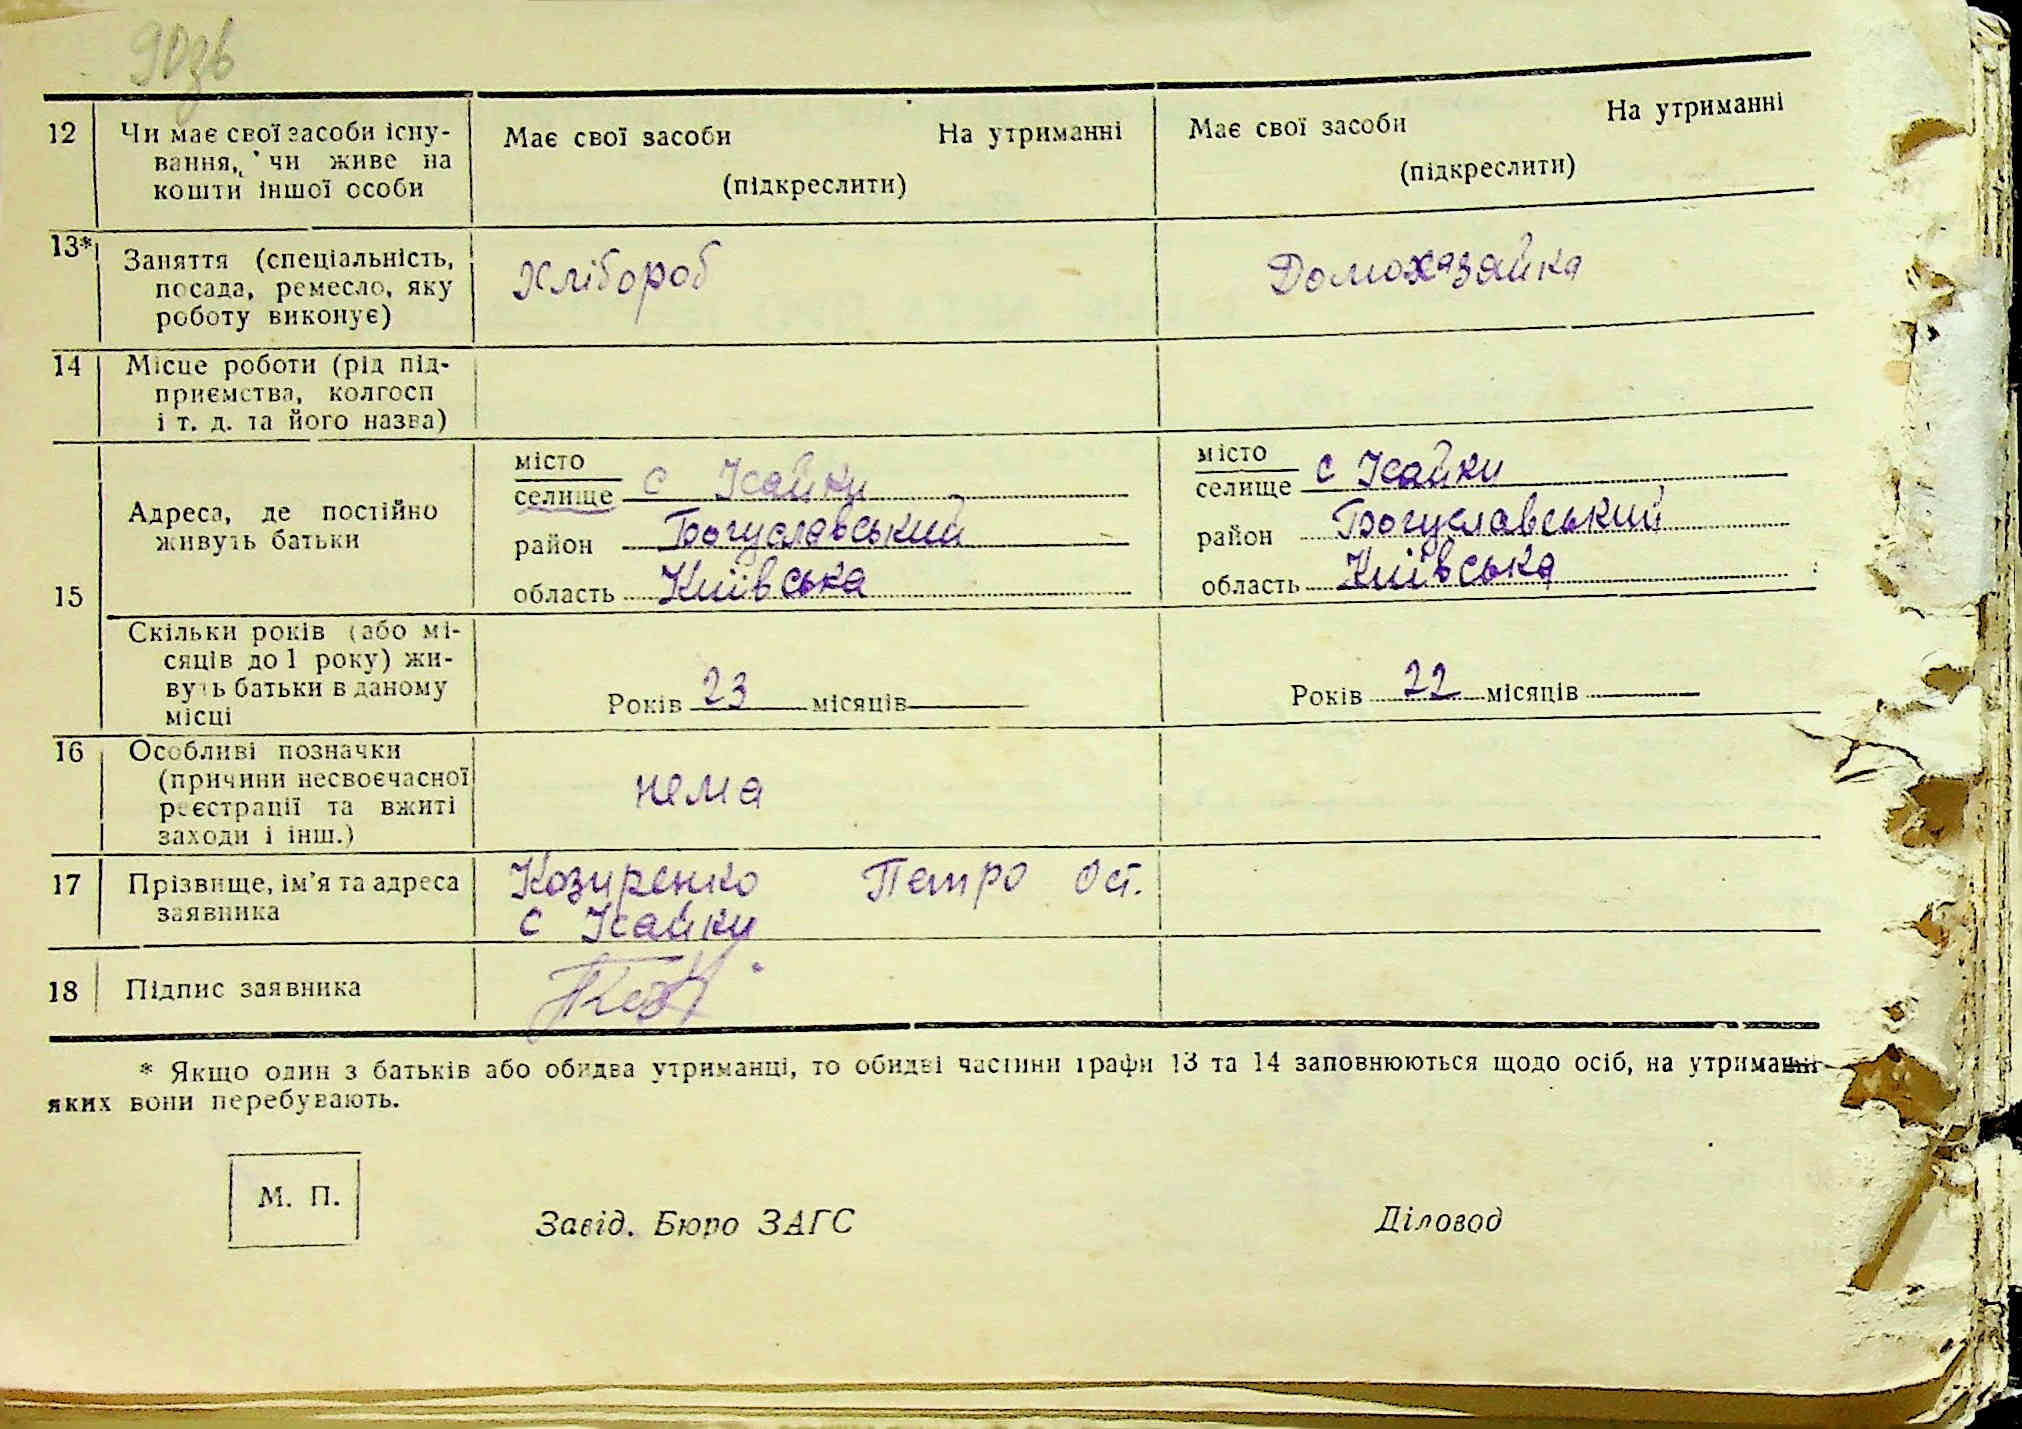 90зв
12 Чи має свої засоби існу- Має свої засоби На утриманні Має свої засоби На утриманні
вання, чи живе на (підкреслити) (підкреслити)
кошти іншої особи
13* Заняття (спеціальність, Хлібороб Домохазяйка
посада, ремесло, яку
роботу виконує)
14 Місце роботи (рід під-
приємства, колгосп
і т. д. та його назва)
15 Адреса, де постійно
живуть батьки
місто
селище с Ісайки
район Богуславський
область Київська
місто
селище с Ісайки
район Богуславський
область Київська
Скільки років (або мі-
сяців до 1 року) жи-
вуть батьки в даному
місці
Років 23 місяців
Років 22 місяців
16 Особливі позначки
(причини несвоєчасної
реєстрації та вжиті
заходи і інш.)
нема
17 Прізвище, ім'я та адреса
заявника
Козиренко Петро Ост.
с Ісайки
18 Підпис заявника
* Якщо один з батьків або обидва утриманці, то обидві частини графи 13 та 14 заповнюються щодо осіб, на утриманні
яких вони перебувають.
М. П.
Завід. Бюро ЗАГС Діловод